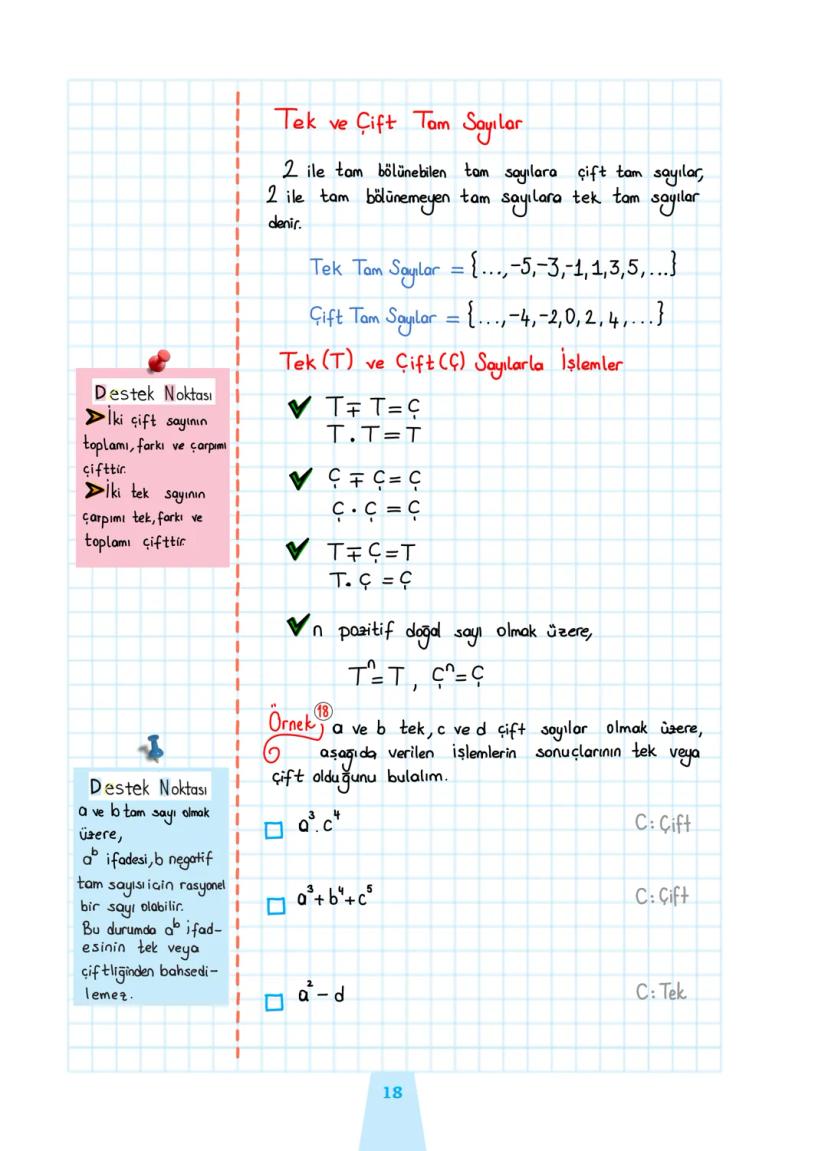 Tek ve Çift Tam Sayılar
2 ile tam bölünebilen tam sayılara çift tam sayılar,
2 ile tam bölünemeyen tam sayılara tek tam sayılar
denir.
Tek Tam Sayılar = {...,-5,-3,-1,1,3,5,...}
Çift Tam Sayılar = {...,-4,-2,0,2,4,...}
Tek(T) ve Çift(Ç) Sayılarla İşlemler
T∓T=Ç
T.T=T
Ç∓Ç=Ç
Ç.Ç=Ç
T∓Ç=T
T.Ç=Ç
n pozitif doğal sayı olmak üzere,
Tⁿ=T, Çⁿ=Ç
Destek Noktası
➤İki çift sayının
toplamı, farkı ve çarpımı
çifttir.
➤İki tek sayının
çarpımı tek, farkı ve
toplamı çifttir
Örnek 18 a ve b tek, c ve d çift sayılar olmak üzere,
aşağıda verilen işlemlerin sonuçlarının tek veya
çift olduğunu bulalım.
a³.c⁴ C: Çift
a³+b⁴+c⁵ C: Çift
a²-d C: Tek
Destek Noktası
a ve b tam sayı olmak
üzere,
aᵇ ifadesi, b negatif
tam sayısı için rasyonel
bir sayı olabilir.
Bu durumda aᵇ ifad-
esinin tek veya
çiftliğinden bahsedi-
lemez.
18